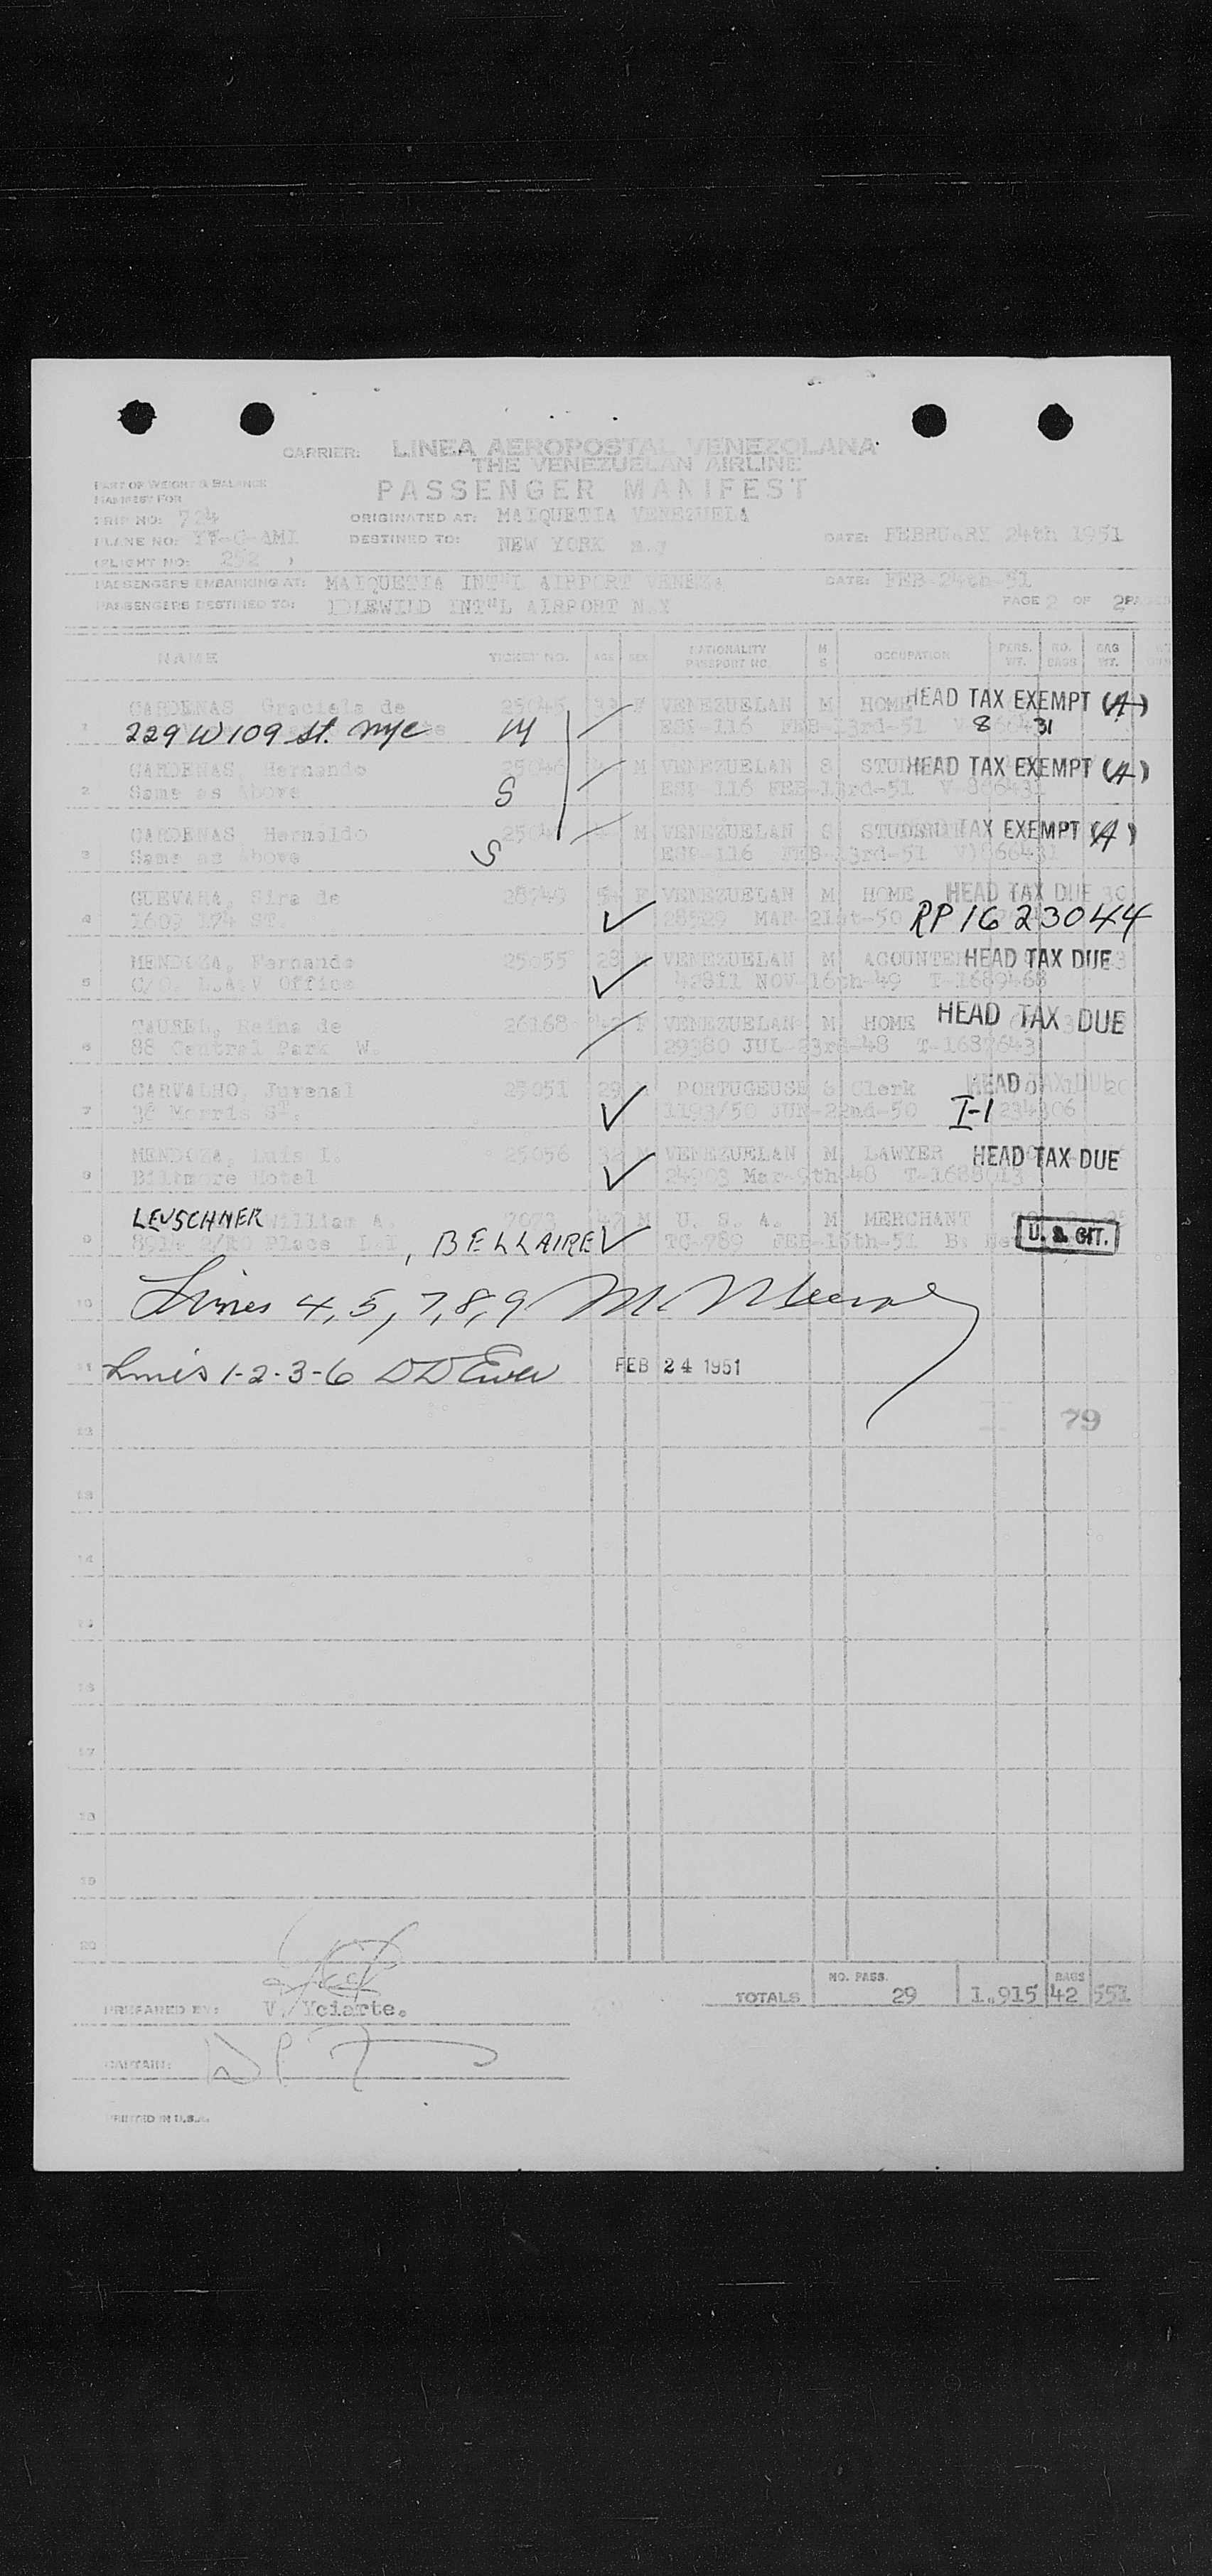 CARRIER: LINEA AEROPOSTAL VENEZOLANA
THE VENEZUELAN AIRLINE
PART OF WEIGHT & BALANCE
MANIFEST FOR
PASSENGER MANIFEST
TRIP NO: 724
ORIGINATED AT: MAIQUETIA VENEZUELA
PLANE NO: YV-C-AMI
DESTINED TO: NEW YORK N.Y
DATE: FEBRUARY 24th 1951
(FLIGHT NO: 252 )
PASSENGERS EMBARKING AT: MAIQUETIA INT"L AIRPORT VENEZA
DATE: FEB-24th-51
PASSENGERS DESTINED TO: IDLEWILD INT"L AIRPORT N.Y
PAGE 2 OF 2
NAME TICKET NO. AGE SEX NATIONALITY PASSPORT NO. M S OCCUPATION PERS. WT. NO. BAGS BAG WT.
CARDENAS, Graciela de 25045 F VENEZUELAN M HOME HEAD TAX EXEMPT (A)
1 229 W 109 St. NYC M ESP-116 FEB- 3rd-51 8 31
CARDENAS, Hernando 25046 M VENEZUELAN S HEAD TAX EXEMPT (A)
2 Same as above S ESP 116 FEB-13rd-51 V-866431
CARDENAS Hernaldo M VENEZUELAN S STUDENT TAX EXEMPT (A)
3 Same as above S ESP-116 FEB- 3rd-51 V)866431
GUEVARA, Sira de 28749 54 F VENEZUELAN M HOME HEAD TAX DUE
4 1609 174 ST. 28529 MAR-21st-50 RP 1623044
MENDOZA, Fernando 25055 28 VENEZUELAN M ACOUNTE HEAD TAX DUE
5 C/O. L.A.V Office 42811 NOV-16th-49 T-1689468
TAUREL, Reina de 26168 42 F VENEZUELAN M HOME HEAD TAX DUE
6 88 Central Park W. 29380 JUL-23rd-48 T-1687643
CARVALHO, Juvenal 25051 29 PORTUGEUSE S Clerk HEAD TAX DUE
7 38 Morris ST. 1193/50 JUN-22nd-50 I-1 234306
MENDOZA, Luis I. 25056 32 VENEZUELAN M LAWYER HEAD TAX DUE
8 Biltmore Hotel 24903 Mar-9th-48
LEUSCHNER William A. 7073 47 M U. S. A. M MERCHANT
9 Place , BELLAIRE TC-789 FEB-15th-51 U. S. CIT.
10 Lines 4, 5, 7, 8, 9
11 Lines 1-2-3-6 FEB 24 1951
12 79
13
14
15
16
17
18
19
20
NO. PASS. BAGS
TOTALS 29 1.915 42 551
PREPARED BY: V. Yciarte.
CAPTAIN:
PRINTED IN U.S.A.